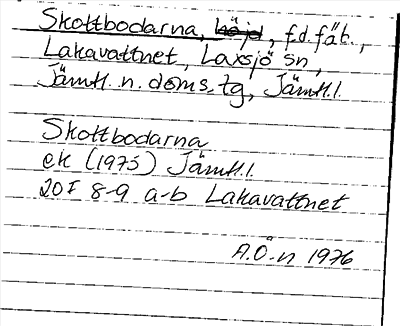 Skottbodarna, f.d.fäb.,
Lakavattnet, Laxsjö sn,
Jämtl. n. doms.tg, Jämtl.l.
Skottbodarna
ek (1975) Jämtl.l.
20F 8-9 a-b Lakavattnet
A.Ö-n 1976